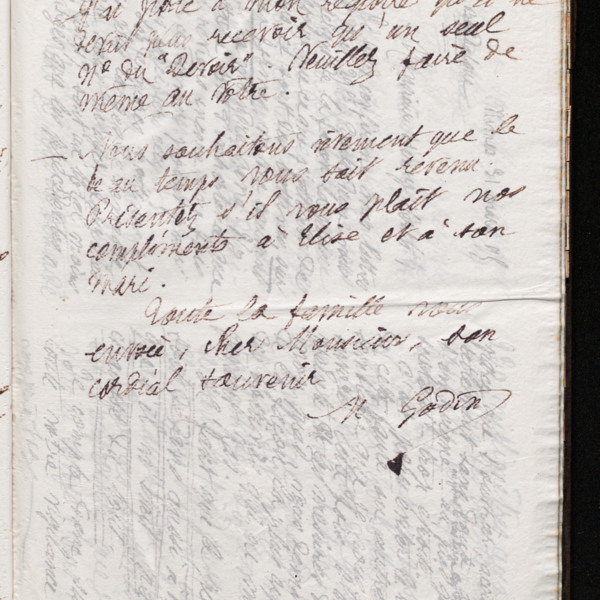 J'ai noté à mon registre qu'il ne
devait plus recevoir qu'un seul
No du "Devoir". Veuillez faire de
même au vôtre.
— Nous souhaitons vivement que le
beau temps vous soit revenu.
Présentez s'il vous plaît nos
compliments à Elise et à son
mari.
Toute la famille vous
envoie, cher Monsieur, son
cordial souvenir
M Godin